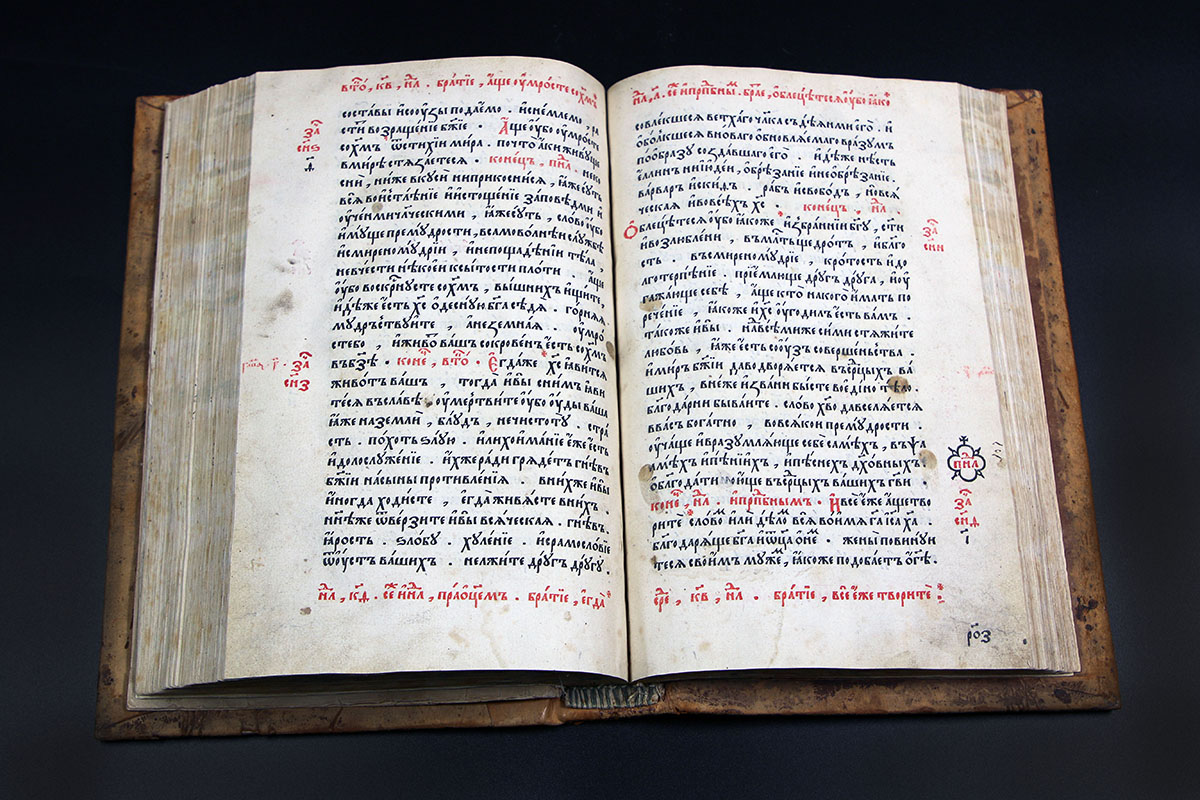 вто҇, к҃в, нл҇ѧ . бра́тїе , а́ще ѹ҆мро́сте сохм҇ъ
соста́вы и҆соу́зы подае́мо . и҆снемлемо , ра
сти́тъ возраще́нїе бж҃їе . А҆́ще ѹ҆́бо ѹ҆мро́сте
сохм҇ъ ѿ стихі́и мі́ра . почто̀ а҆́ки живу́ще
вми́рѣ стѧза́етесѧ . коне́цъ , пнл҇ѧ .
за҇ с҃нѕ
всѧ̀ во и҆стлѣ́нїе и҆и҆стоще́нїе за́повѣдми и҆
ѹ҆че́нми чл҃ческими , ꙗ҆́же су́ть , сло́во ѹ҆́бо
и҆му́ще прему́дрости , всамово́лнѣи слу́жбѣ
и҆смиреному́дрїи , и҆непощадѣ́нїи тѣ́ла ,
невче́сти нѣ́коеи ксы́тости пло́ти . а҆́ще
ѹ҆́бо воскрсну́сте сохм҇ъ , вы́шнихъ и҆щи́те ,
и҆дѣ́же є҆́сть х҃с ѡ҆десну́ю бг҃а сѣдѧ̀ . го́рнѧѧ
му́дръствуите , а҆неземна́ѧ . ѹ҆мро́
сте бо , и҆живо́тъ ва́шъ сокрове́нъ є҆́сть сохм҇ъ
въбз҃ѣ . коне҇ , вто҇ . Є҆гда́же х҃с ꙗ҆ви́тсѧ
за҇ с҃нз
живо́тъ ва́шъ , тогда̀ и҆вы̀ сни́мъ ꙗ҆ви́
тесѧ въсла́вѣ . ѹ҆мертви́те ѹ҆́бо ѹ҆́ды ва́ша
ꙗ҆́же наземлѝ , блу́дъ , нечистоту̀ . стра́
сть . по́хоть ѕлу́ю . и҆лихоима́нїе є҆́же є҆́сть
и҆долослуже́нїе . и҆́хже ра́ди грѧде́тъ гнѣ́въ
бж҃їи насы́ны проти́вленїѧ . вни́хже и҆вы̀
и҆ногда̀ ходи́сте , є҆гда̀ живѧ́сте вни́хъ .
нн҃ѣже ѿве́рзите и҆вы̀ всѧ́ческаѧ . гнѣ́въ .
ꙗ҆́рость . ѕло́бу . хуле́нїе . и҆срамосло́вїе
ѿ ѹ҆́стъ ва́шихъ . нелжи́те дру́гъ дру́гу .
нл҇ѧ , к҃д . прао҆́цемъ . бра́тїе , є҆гда̀
бра҇е , ѡ҆блецѣ́тесѧ ѹ҆́бо ꙗ҆́ко
совле́кшесѧ ве́тхаго чл҃ка съдѣѧ́ньми є҆го̀ . и҆
ѡ҆бо́лкшесѧ вно́ваго ѡ҆бновлѧ́емаго вра́зумъ
поѡ́бразу созда́вшаго є҆го̀ . и҆дѣ́же нѣ́сть
є҆́ллинъ ни і҆юде́и , ѡ҆брѣ́занїе и҆неѡбрѣ́занїе .
ва́рваръ и҆ски́ѳъ . ра́бъ и҆свобо́дь , новсѧ́
ческаѧ и҆вовсѣ́хъ х҃с . коне́цъ , нл҇ѧ
Ѡ҆блецѣ́тесѧ ѹ҆́бо ꙗ҆́коже и҆збра́ннїи бг҃у , ст҃и
за҇ с҃нн
и҆возлю́блени , въми́лость щедро́тъ , и҆бл҃го
сть . въсмиреному́дрїе , кро́тость и҆до
лготерпѣ́нїе . прїе́млюще дру́гъ дру́га , и҆ѹ
гажа́юще себѣ̀ , а҆́ще кто̀ накого̀ и҆́мать по
рече́нїе , ꙗ҆́коже и҆х҃с ѹ҆годи́лъ є҆́сть ва́мъ .
та́коже и҆вы̀ . надвсѣ́миже си́ми стѧжи́те
любо́вь , ꙗ҆́же є҆́сть соу́зъ соверше́ньства .
и҆ми́ръ бж҃їи давдворѧ́етсѧ въсрц҃ыхъ ва́
шихъ , вне́же и҆зва́ни бы́сте вое҆ди́но тѣ́ло .
бл҃года́рни быва́ите . сло́во хв҃о давселѧ́етсѧ
вва́съ бога́тно , вовсѧ́кои прему́дрости .
ѹ҆ча́ще и҆вразумлѧ́юще себѐ самѣ́хъ , въѱа
лмѣ́хъ и҆пѣ́нїихъ , и҆пѣ́снехъ дх҃о́вныхъ .
во бл҃года́ти пою́ще въсрц҃ыхъ ва́шихъ гв҃и .
пнл҇ѧ
коне҇ , нл҇ѧ . и҆прпб҇нымъ . И҆всѐ є҆́же а҆́ще тво
за҇ с҃нѳ
ритѐ сло́вомъ и҆лѝ дѣ́ломъ всѧ̀ вои҆́мѧ га҃ і҆са ха҃ .
бл҃годарѧ́ще бг҃а и҆ѿц҃а ѡ҆ не́мъ . жены̀ повину́и
тесѧ свои҆́мъ муже́мъ , ꙗ҆́коже подоба́етъ ѡ҆ гд҇ѣ .
к҃в , нл҇ѧ . бра́тїе , всѐ є҆́же творитѐ
р҃ѻз